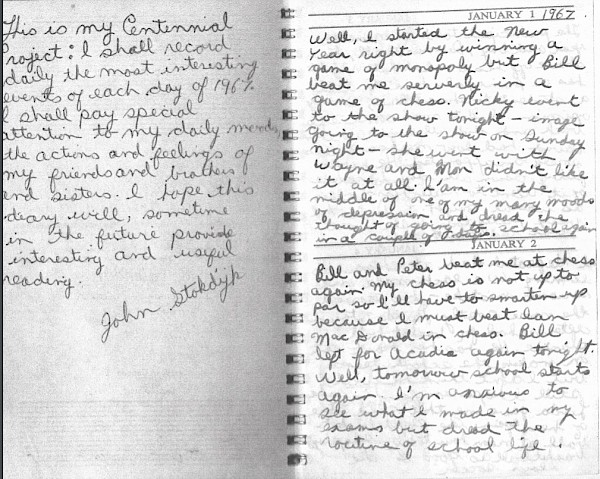 This is my Centennial
Project: I shall record
daily the most interesting
events of each day of 1967.
I shall pay special
attention to my daily moods,
the actions and feelings of
my friends and brothers
and sisters. I hope this
diary will, sometime
in the future provide
interesting and useful
reading.
John Stokdijk
JANUARY 1 1967
Well, I started the New
Year right by winning a
game of monopoly but Bill
beat me serverly in a
game of chess. Nicky went
to the show tonight - image
going to the show on Sunday
night - she went with
Wayne and Mon didn't like
it at all. I am in the
middle of one of my many moods
of depression and dread the
thought of going to school again
in a couple of days.
JANUARY 2
Bill and Peter beat me at chess
again. My chess is not up to
par so I'll have to smarten up
because I must beat Ian
Mac Donald in chess. Bill
left for Acadia again tonight.
Well, tomorrow school starts
again. I'm anxious to
see what I made in my
exams but dread the
routine of school life.